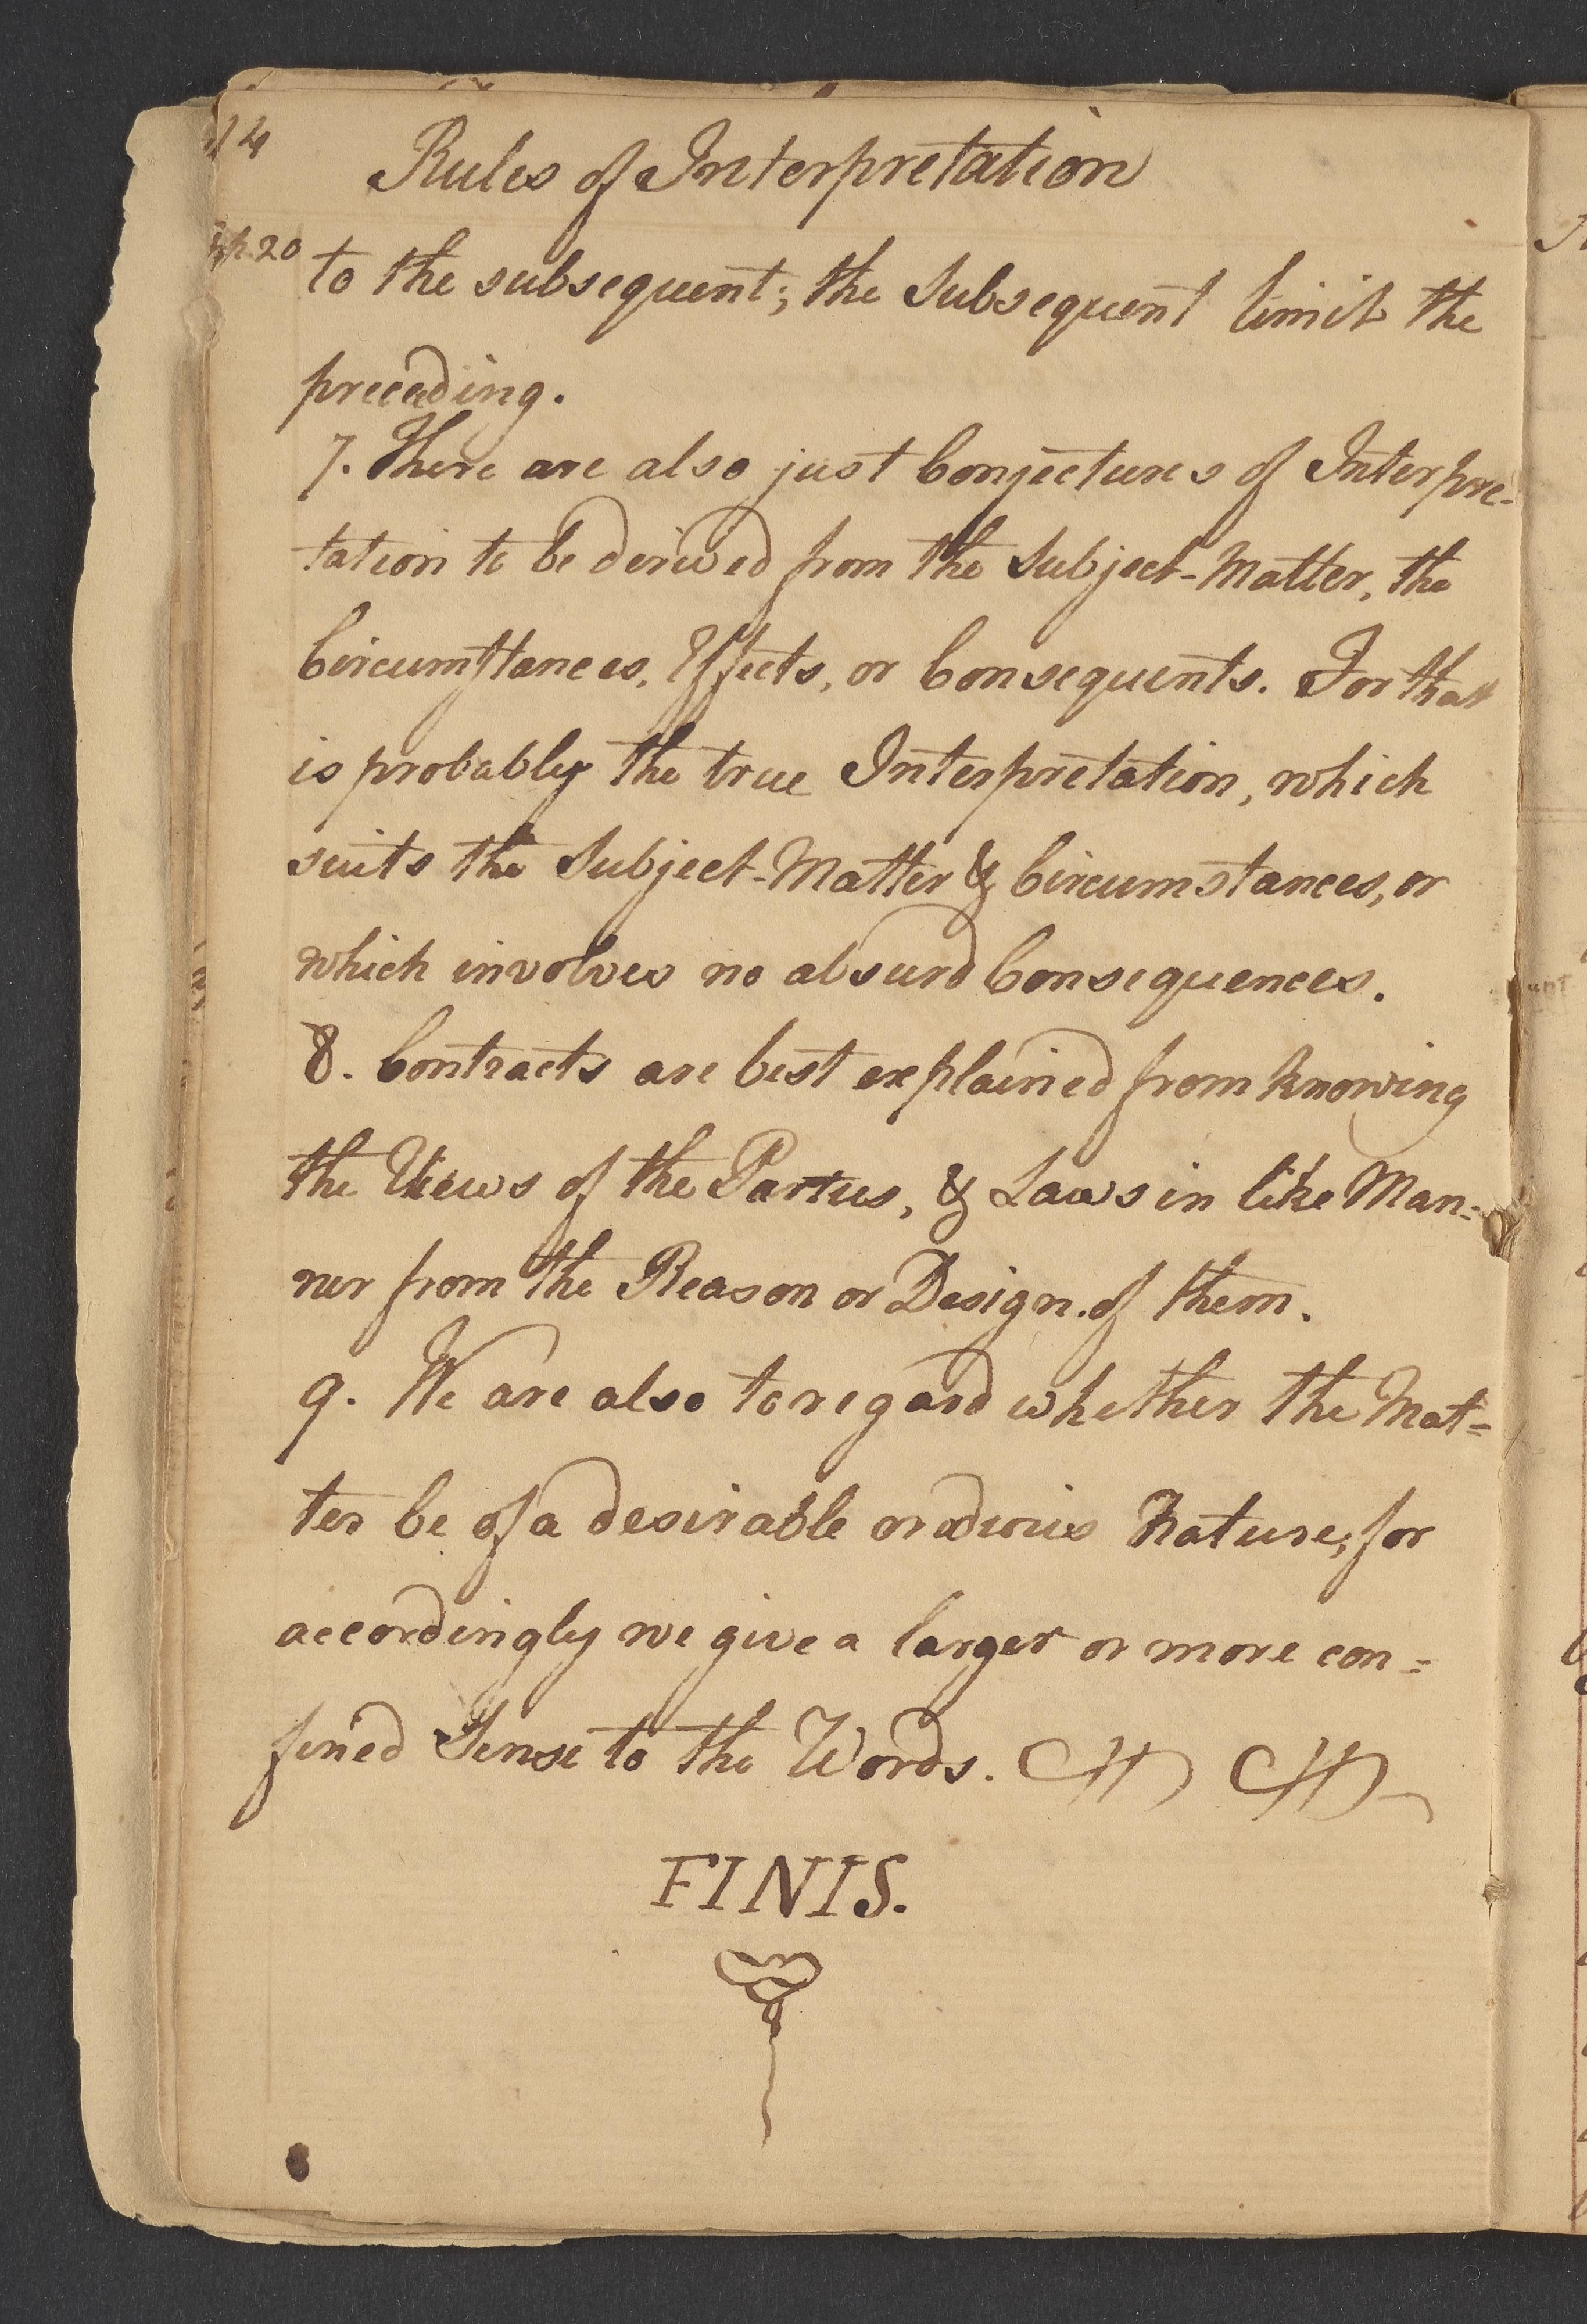 14
Rules of Interpretation
p. 20
to the subsequent; the Subsequent limit the
preceeding.
7. There are also just Conjectures of Interpre-
tation to be derived from the Subject-Matter, the
Circumstances, Effects, or Consequents. For that
is probably the true Interpretation, which
suits the Subject-Matter & Circumstances, or
which involves no absurd Consequences.
8. Contracts are best explained from knowing
the Views of the Parties, & Laws in like Man=
ner from the Reason or Design of them.
9. We are also to regard whether the Mat=
ter be of a desirable or odious Nature; for
accordingly we give a larger or more con=
fined Sense to the Words.
FINIS.